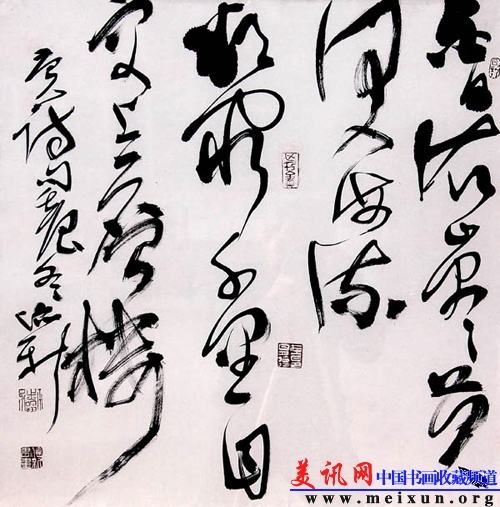 白日依山尽黄
河入海流
欲穷千里目
更上一层楼
唐人诗句
美讯网 中国书画收藏频道
www.meixun.org